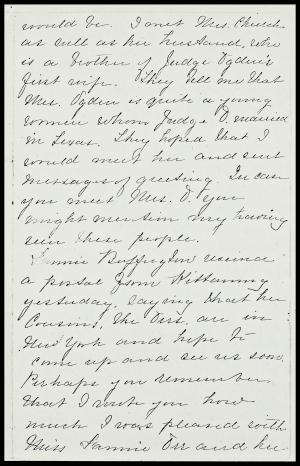 would be. I met Mrs. Church
as well as her husband, who
is a brother of Judge Ogden's
first wife. They tell me that
Mrs. Ogden is quite a young
women whom Judge O. married
in Texas. They hoped that I
would meet her and sent
messages of greeting. In case
you meet Mrs. O. you
might mention my having
seen these people.
Fannie Buffington received
a postal from Kittanning
yesterday, saying that her
Cousins, the Orrs. are in
New York and hope to
come up and see us soon.
Perhaps you remember
that I wrote you how
much I was pleased with
Miss Fannie Orr and her